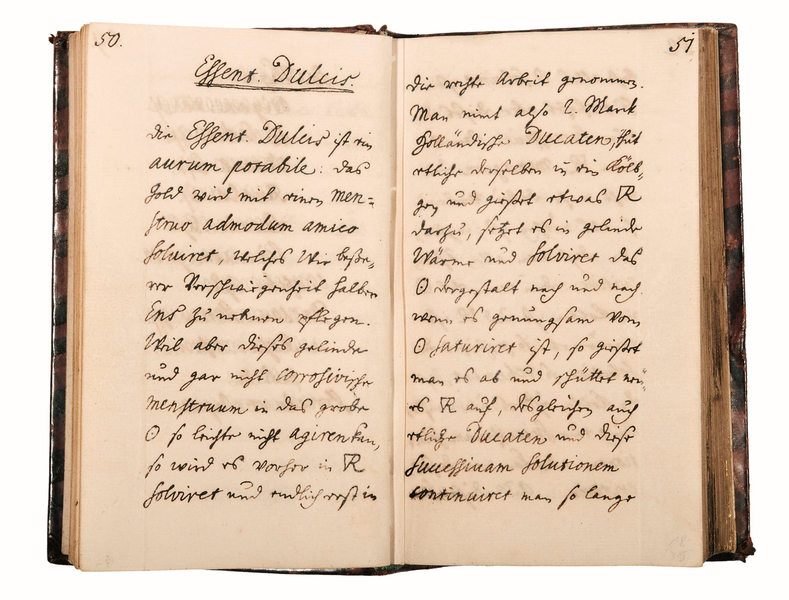 50.
Essent. Dulcis.
Die Essent. Dulcis ist ein
aurum potabile: das
Gold wird mit einen men=
struo admodum amico
solviret, welches wir beße=
rer Verschwiegenheit halber
Ens zu nennen pflegen.
Weil aber dieses gelinde
und gar nicht corrosivische
menstruum in das grobe
☉ so leichte nicht agiren kan,
so wird es vorher in
solviret und endlich erst in
51
die rechte Arbeit genommen.
Man nimt also 2. Marck
Holländische Ducaten, thut
etliche derselben in ein Kölb=
gen und gießet etwas
darzu, setzet es in gelinde
Wärme und solviret das
☉ dergestalt nach und nach.
wenn es genungsam vom
☉ saturiret ist, so gießet
man es ab und schüttet neu=
es auf, desgleichen auch
etliche Ducaten und diese
successivam solutionem
continuiret man so lange